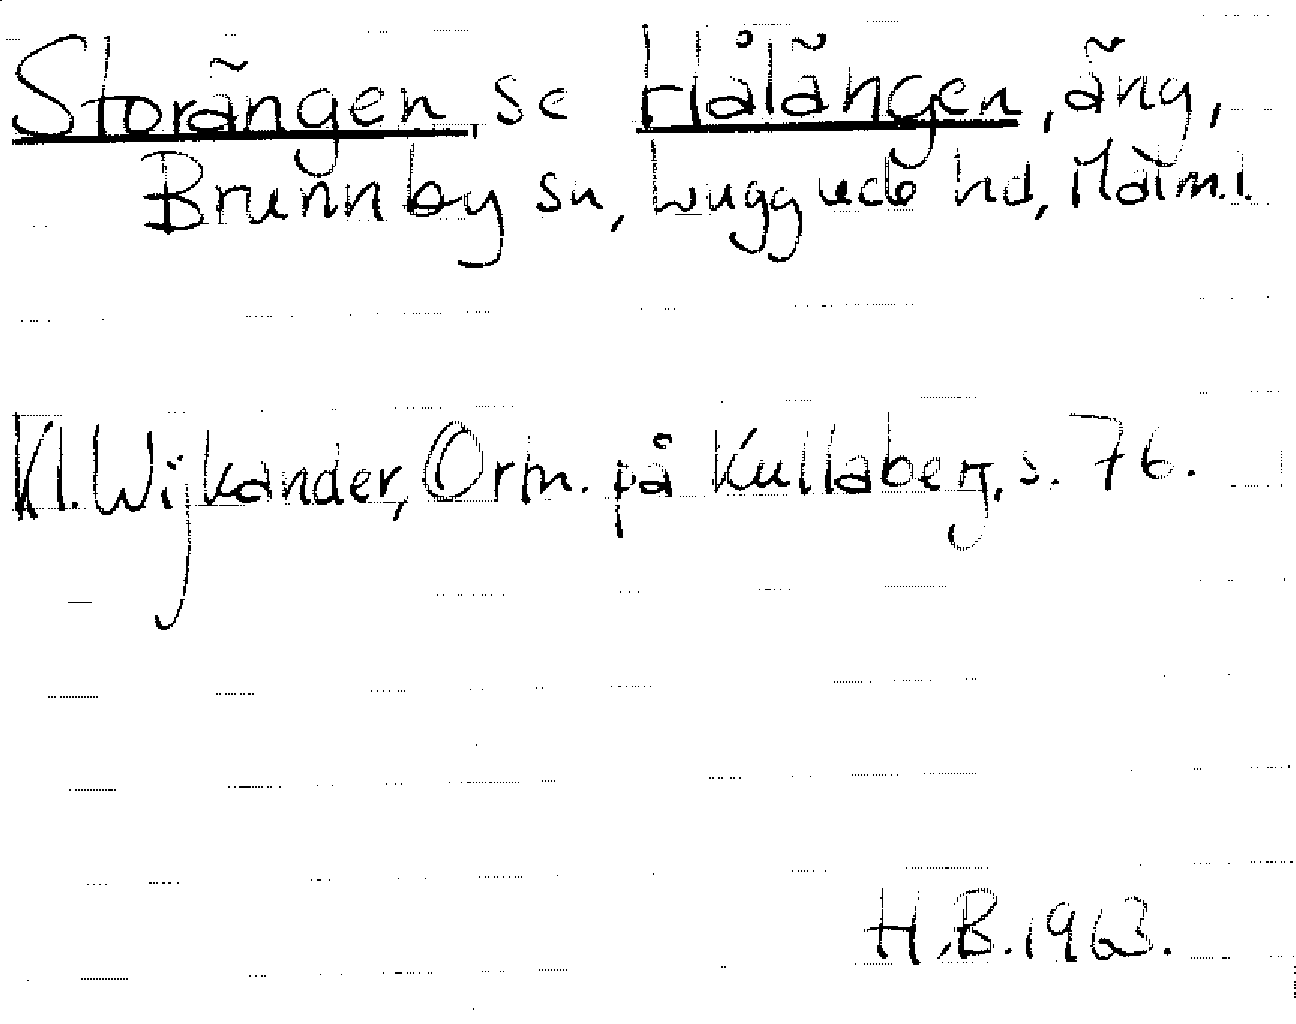 Storängen, se Hålängen, äng,
Brunnby sn, Luggude hd, Malm.l.
Kl. Wijkander, Ortn. på Kullaberg, s. 76.
H.B. 1963.